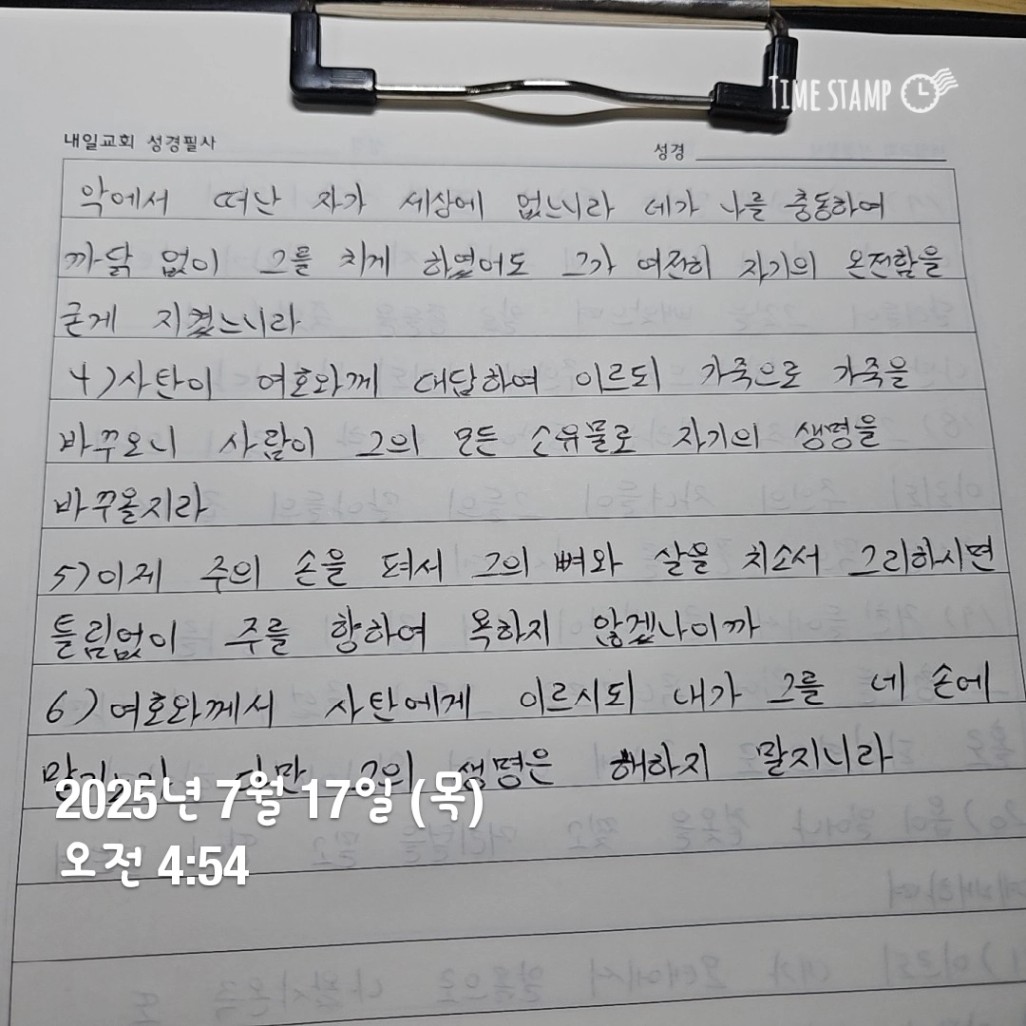 TIME STAMP
내일교회 성경필사
성경
악에서 떠난 자가 세상에 없느니라 네가 나를 충동하여
까닭 없이 그를 치게 하였어도 그가 여전히 자기의 온전함을
굳게 지켰느니라
4) 사탄이 여호와께 대답하여 이르되 가죽으로 가죽을
바꾸오니 사람이 그의 모든 소유물로 자기의 생명을
바꾸올지라
5) 이제 주의 손을 펴서 그의 뼈와 살을 치소서 그리하시면
틀림없이 주를 향하여 욕하지 않겠나이까
6) 여호와께서 사탄에게 이르시되 내가 그를 네 손에
그의 생명은 해하지 말지니라
2025년 7월 17일 (목)
오전 4:54